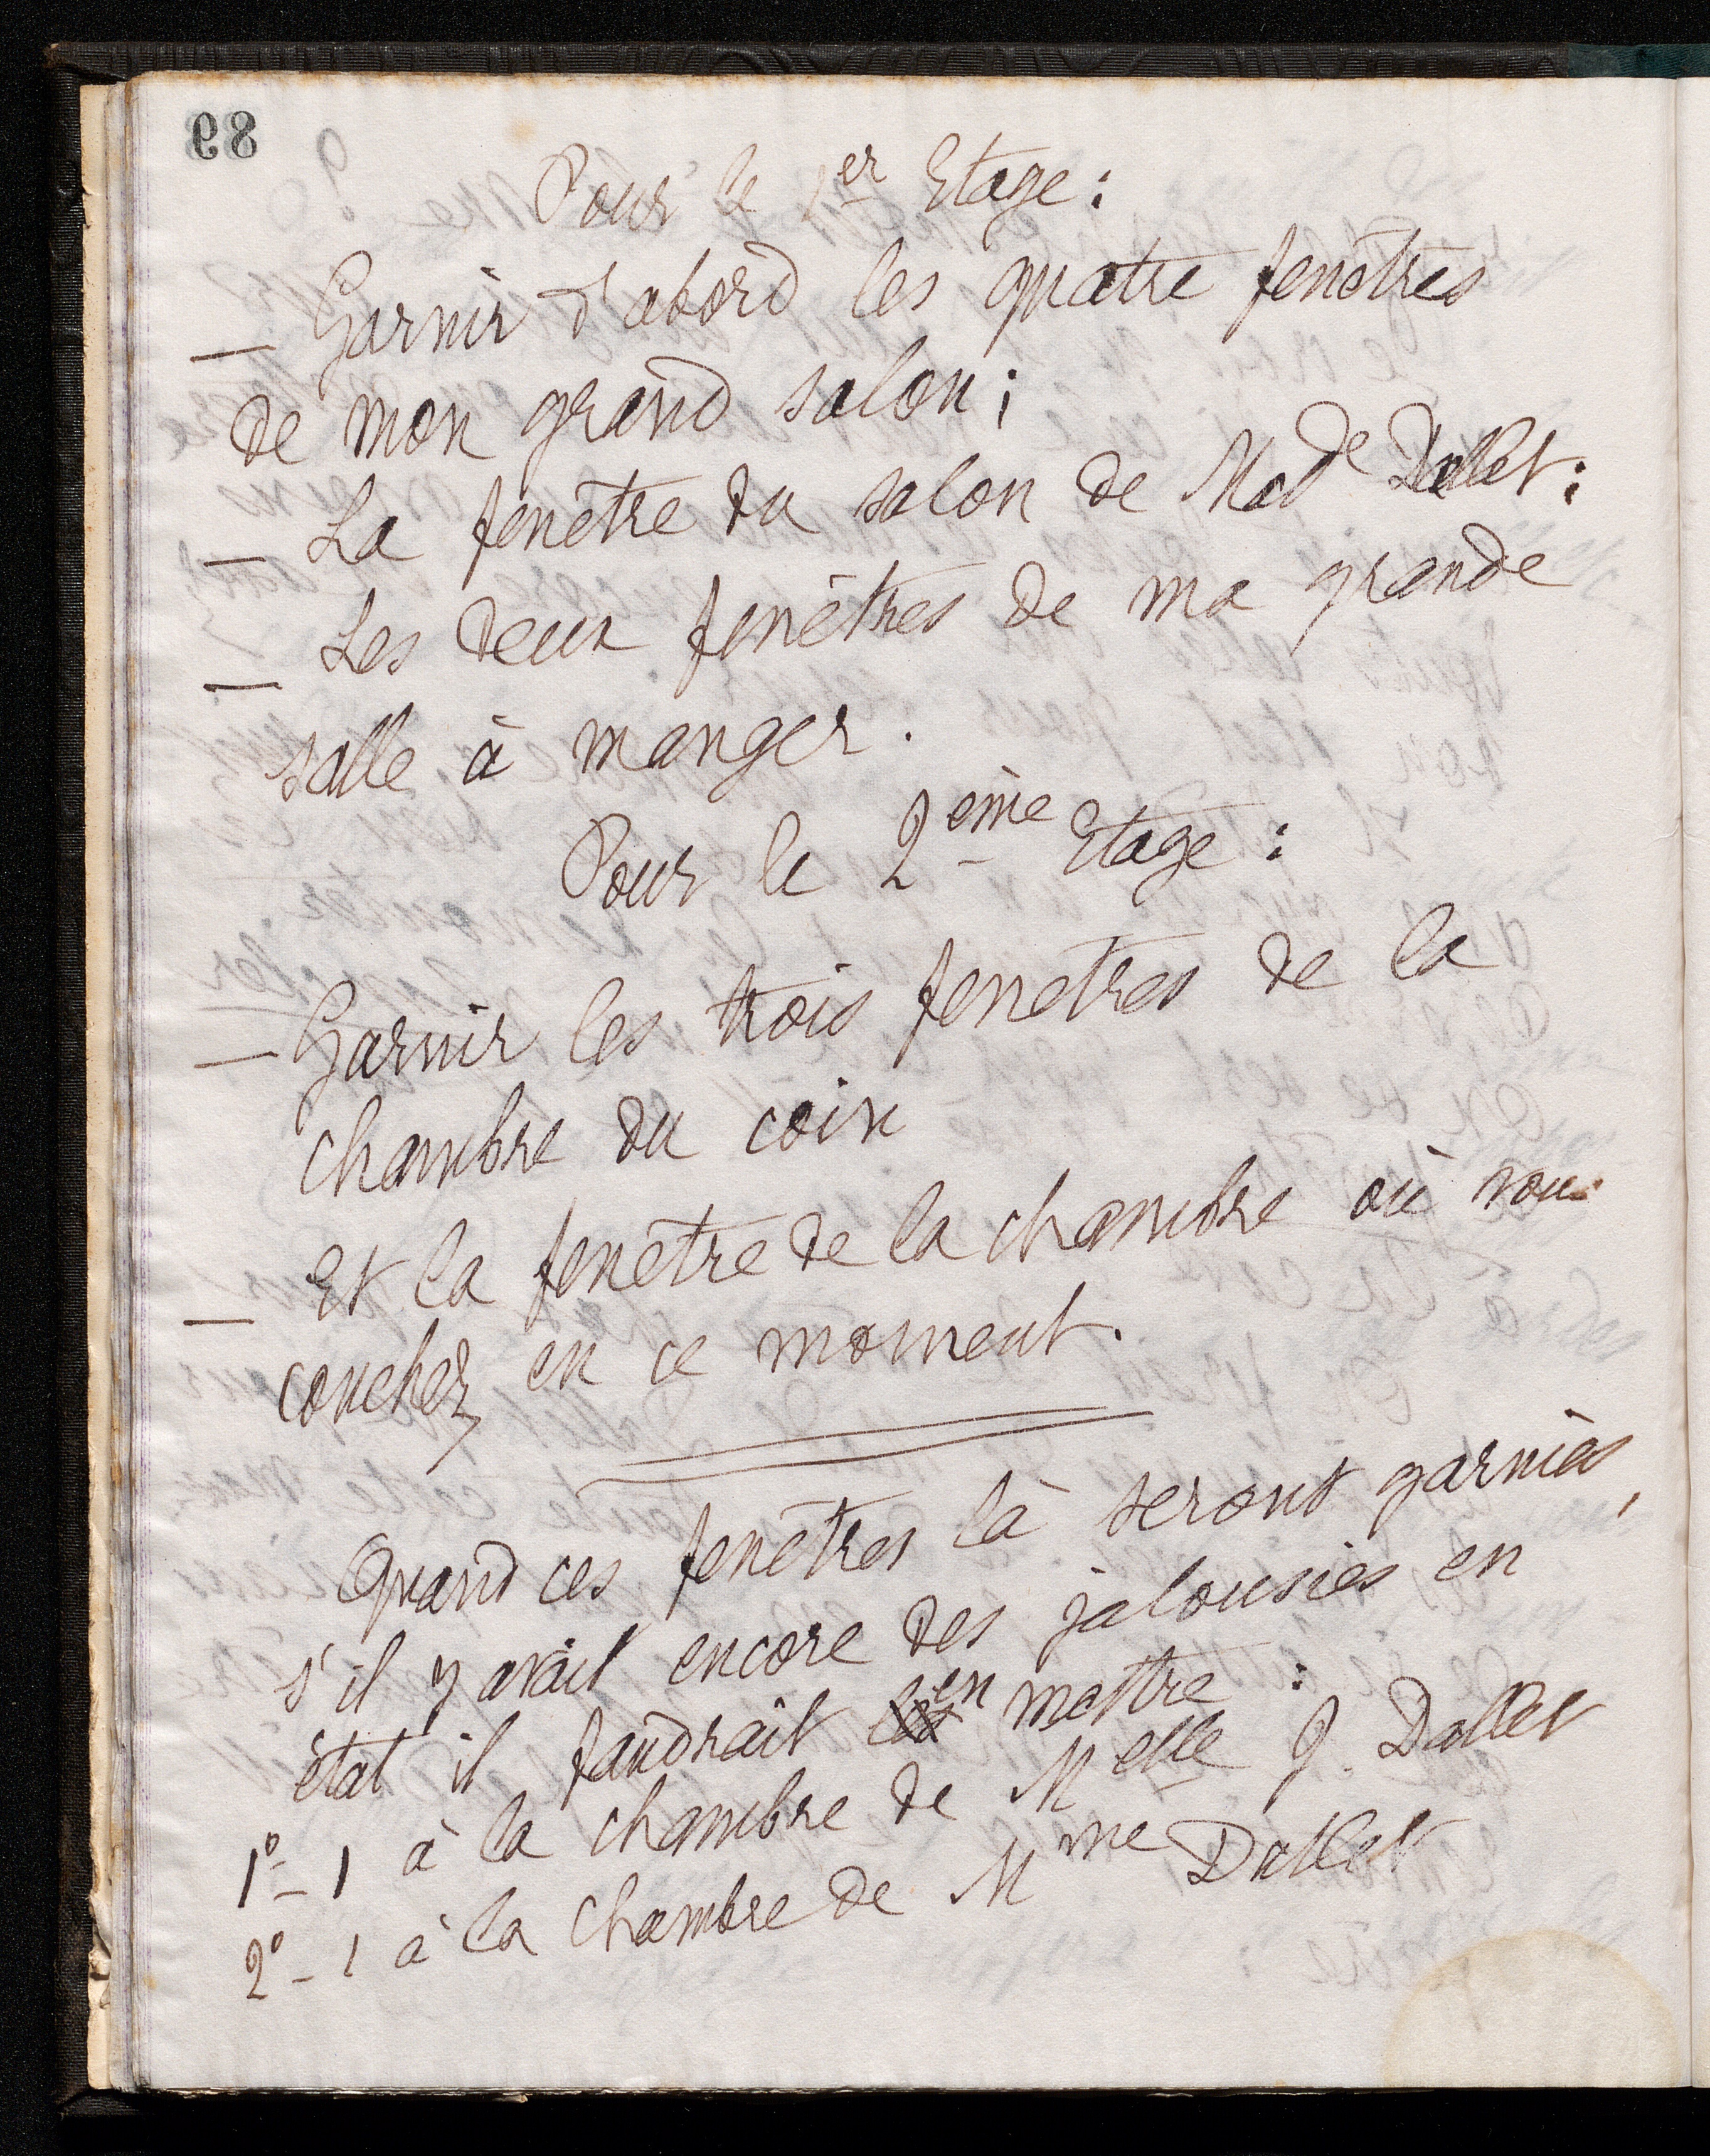 89
Pour le 1er Etage :
— Garnir d'abord les quatre fenêtres
de mon grand salon ;
— La fenêtre du salon de Made Dallet :
— Les deux fenêtres de ma grande
salle à manger .
Pour le 2ème Etage :
— Garnir les trois fenetres de la
chambre du coin
— Et la fenetre de la chambre où vous
couchez en ce moment .
Quand ces fenêtres là seront garnies ,
s'il y avait encore des jalousies en
état il faudrait en mettre :
1º - 1 à la chambre de Melle J. Dallet
2º - 1 à la chambre de Mme Dallet